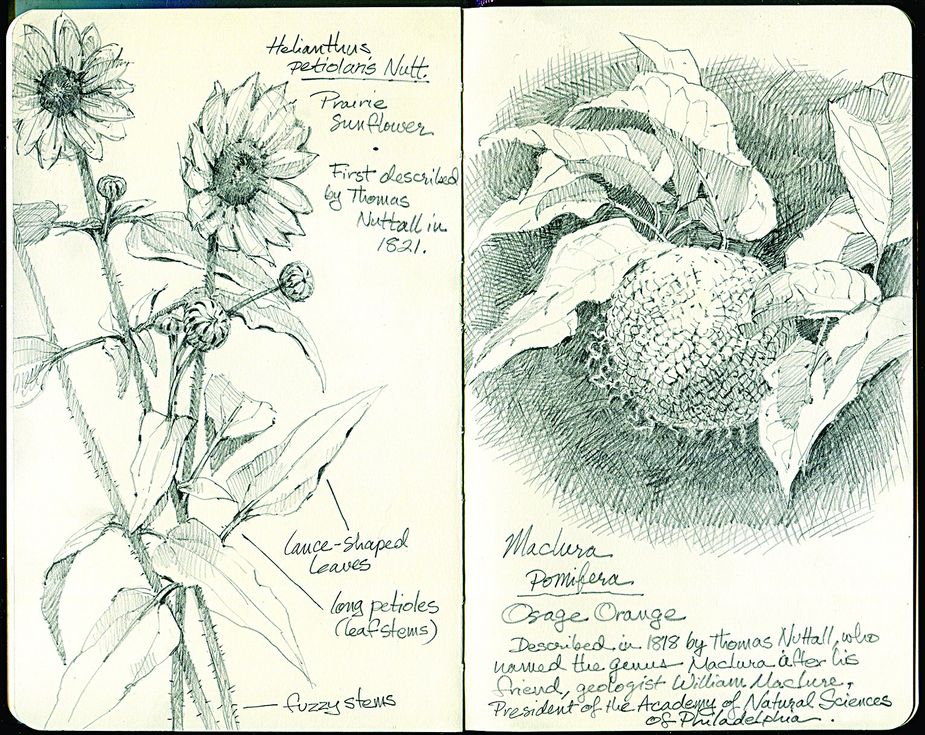 Helianthus
petiolaris Nutt.
Prairie
Sunflower
First described
by Thomas
Nuttall in
1821.
lance-shaped
leaves
long petioles
(leaf stems)
fuzzy stems
Maclura
Pomifera
Osage Orange
Described in 1818 by Thomas Nuttall, who
named the genus Maclura after his
friend, geologist William Maclure,
President of the Academy of Natural Sciences
of Philadelphia.